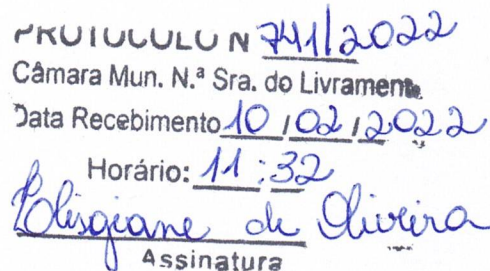 PROTOCOLO N 741/2022
Câmara Mun. N.ª Sra. do Livramento
Data Recebimento 10 / 02 / 2022
Horário: 11:32
Elisgiane de Oliveira
Assinatura